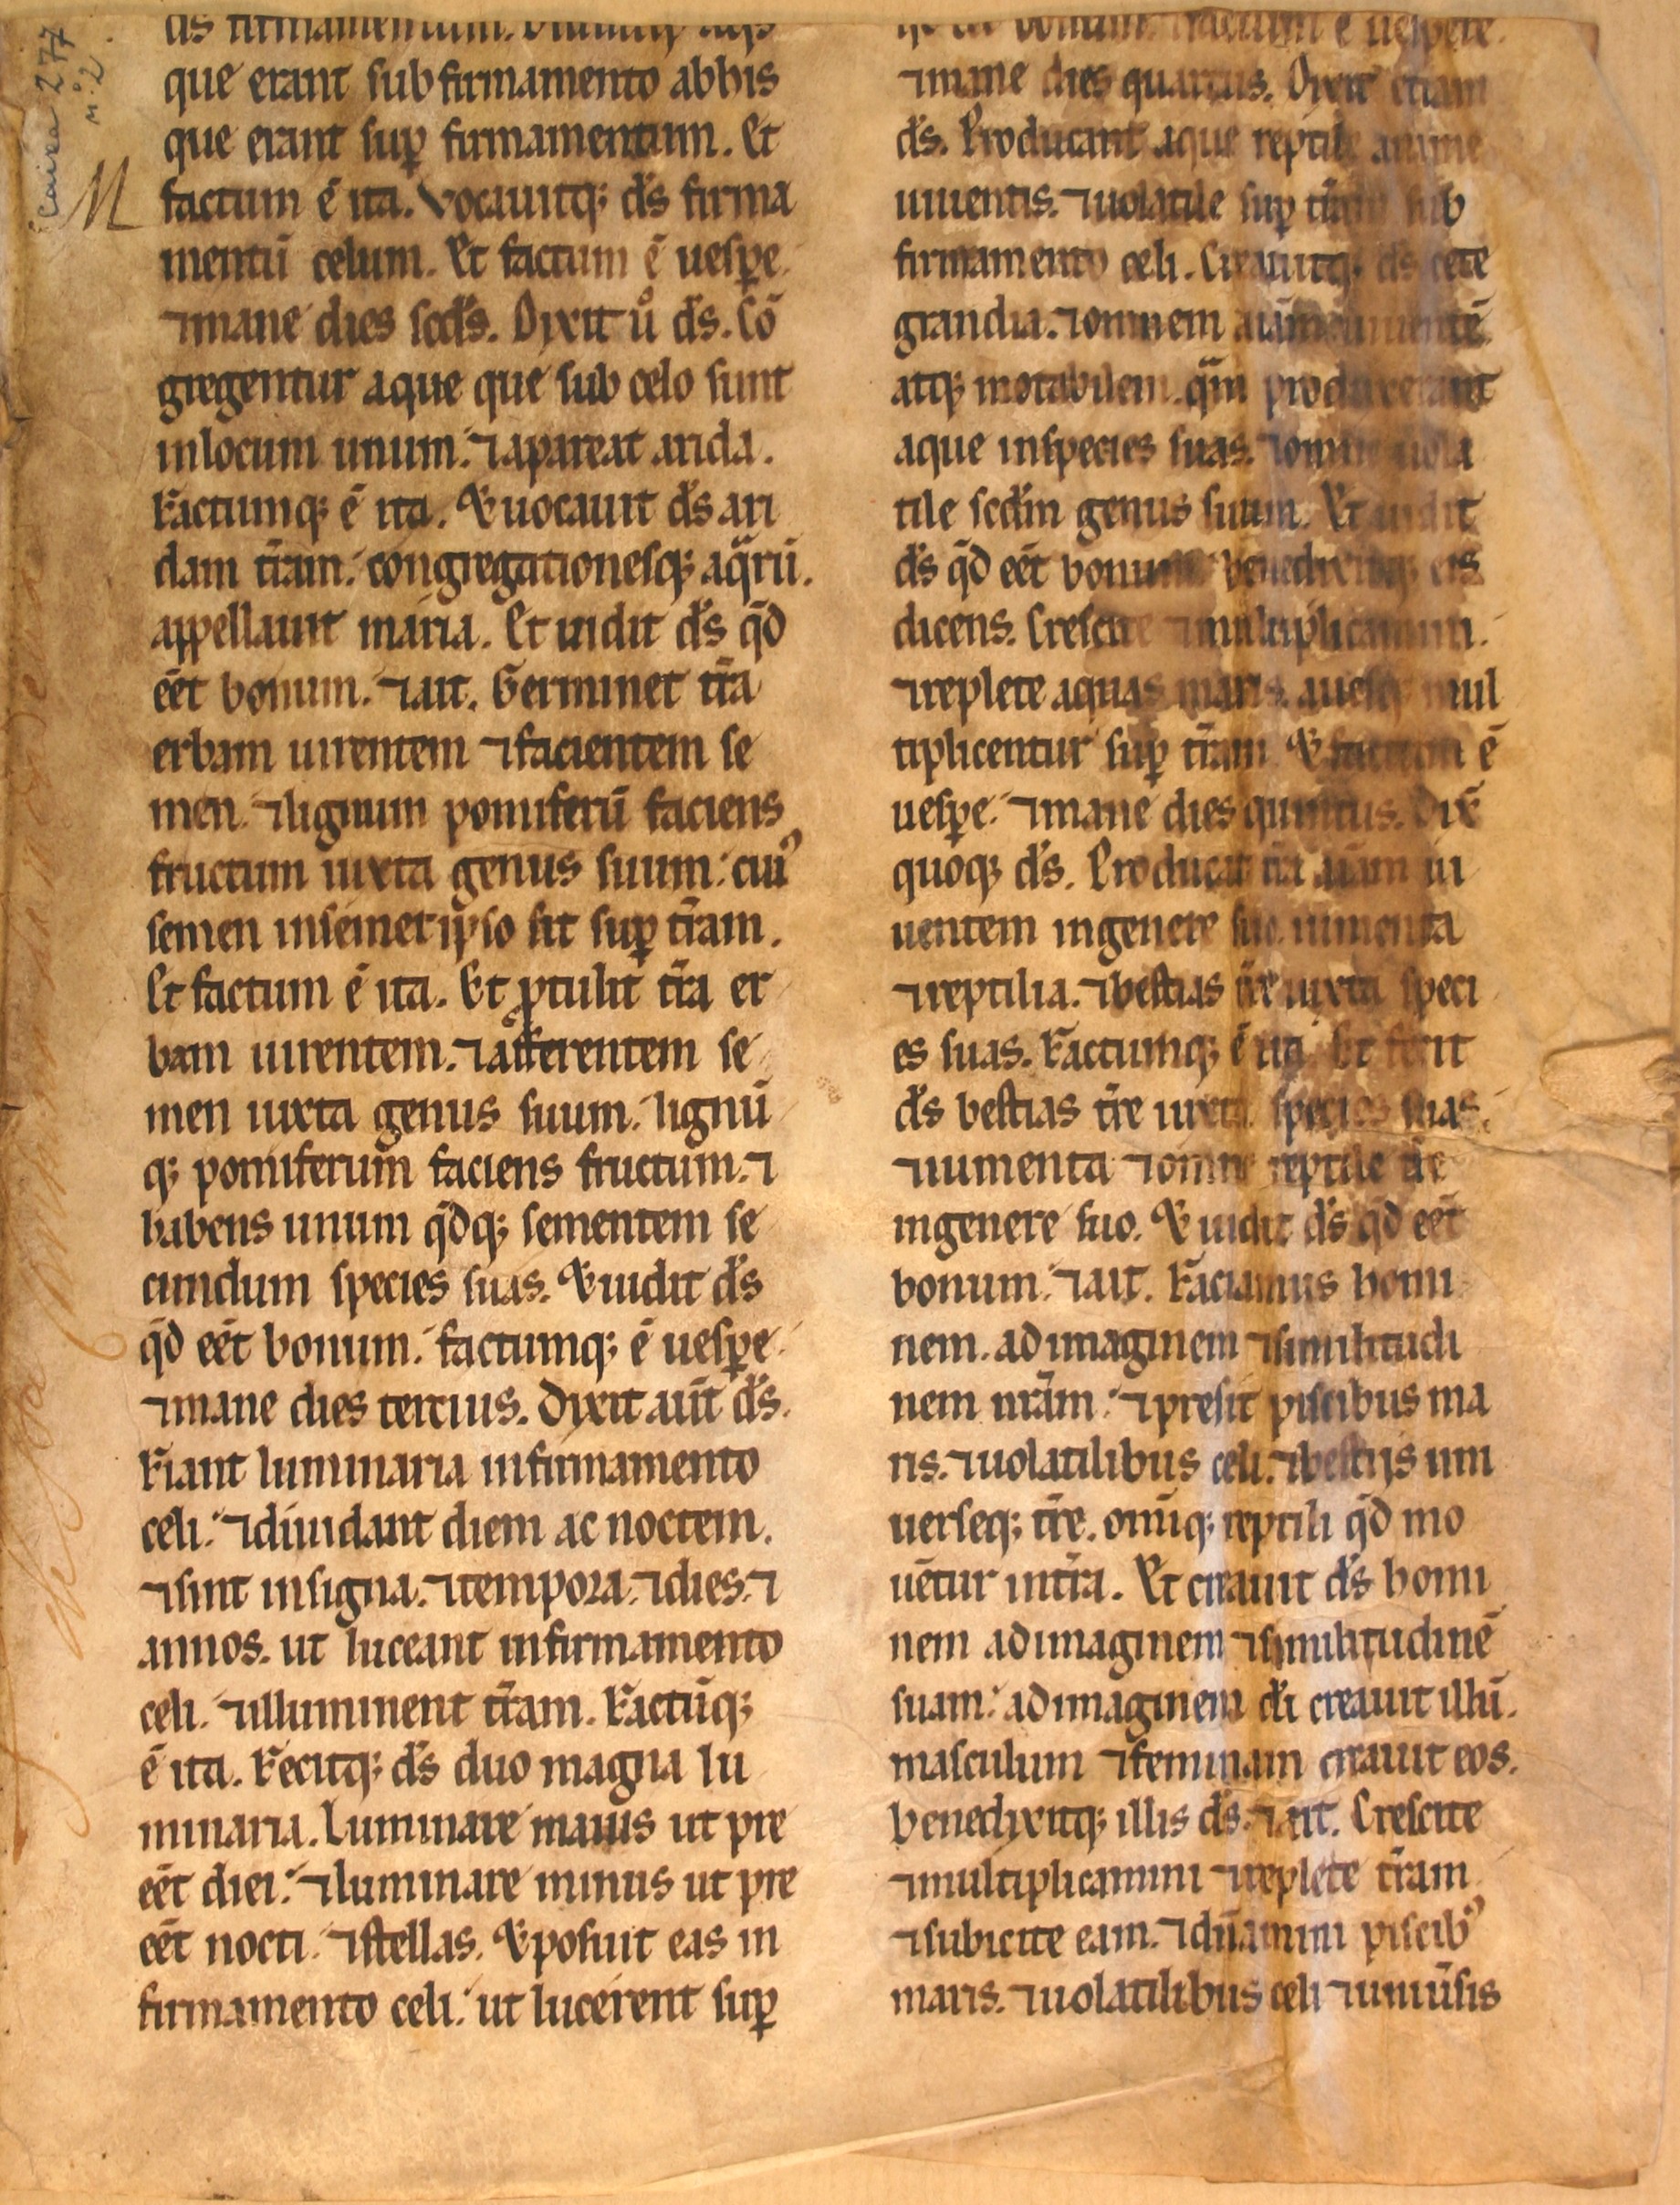 caixa 277
nº 2
M
us firmamentum. diuisitq; aqs
que erant sub firmamento abhis
que erant sup̱ firmamentum. Et
factum ē ita. Vocauitq; d̄s firma
mentū celum. Et factum ē uesp̱e
⁊mane dies scd̄s. Dixit ů d̄s. Cō
gregentur aque que sub celo sunt
inlocum unum. ⁊apareat arida.
Factumq; ē ita. Et uocauit d̄s ari
dam tr̄am. congregationesq; aq̄rū.
appellauit maria. Et uidit d̄s q̄d
eēt bonum. ⁊ait. Germinet tr̄a
erbam uirentem ⁊facientem se
men. ⁊lignum pomiferū faciens
fructum iuxta genus suum. cui᷒
semen insemet ip̄so sit sup̱ tr̄am.
Et factum ē ita. Et ꝓtulit tr̄a er
bam uirentem. ⁊afferentem se
men iuxta genus suum. lignū
q; pomiferum faciens fructum. ⁊
habens unum q̄dq; sementem se
cundum species suas. Et uidit d̄s
q̄d eēt bonum. factumq; ē uesp̱e
⁊mane dies tercius. Dixit aūt d̄s.
Fiant luminaria infirmamento
celi. ⁊diuidant diem ac noctem.
⁊sint insigna. ⁊tempora. ⁊dies. ⁊
annos. ut luceant infirmamento
celi. ⁊illuminent tr̄am. Factūq;
ē ita. Fecitq; d̄s duo magna lu
minaria. Luminare maius ut pre
eēt diei. ⁊luminare minus ut pre
eēt nocti. ⁊stellas. Et posuit eas in
firmamento celi. ut lucerent sup̱
bonum. factum ē uespere
⁊mane dies quartus. Dixit etiam
d̄s. Producant aque reptile anime
uiuentis. ⁊uolatile sup̱ tr̄am sub
firmamento celi. Creauitq; d̄s cete
grandia. ⁊omnem aīam uiuentē
atq; motabilem. q̄m produxerant
aque inspecies suas. ⁊omne uola
tile scd̄m genus suum. Et uidit
d̄s q̄d eēt bonum benedixitq; eis
dicens. Crescite ⁊multiplicamini.
⁊replete aquas maris. auesq; mul
tiplicentur sup̱ tr̄am. Et factum ē
uesp̱e. ⁊mane dies quintus. Dix̄
quoq; d̄s. Producat tr̄a aīam ui
uentem ingenere suo. iumenta
⁊reptilia. ⁊bestias tr̄e iuxta speci
es suas. Factumq; ē ita. Et fecit
d̄s bestias tr̄e iuxta species suas.
⁊iumenta ⁊omne reptile tr̄e
ingenere suo. Et uidit d̄s q̄d eēt
bonum. ⁊ait. Faciamus homi
nem. ad imaginem ⁊similitudi
nem nr̄am. ⁊presit piscibus ma
ris. ⁊uolatilibus celi. ⁊bestijs uni
uerseq; tr̄e. omīq; reptili q̄d mo
uētur intr̄a. Et creauit d̄s homi
nem ad imaginem ⁊similitudinē
suam. ad imaginem d̄i creauit illū.
masculum ⁊feminam creauit eos.
benedixitq; illis d̄s. ⁊ait. Crescite
⁊multiplicamini ⁊replete tr̄am
⁊subicite eam. ⁊dn̄amini piscib᷒
maris. ⁊uolatilibus celi ⁊uniūsis